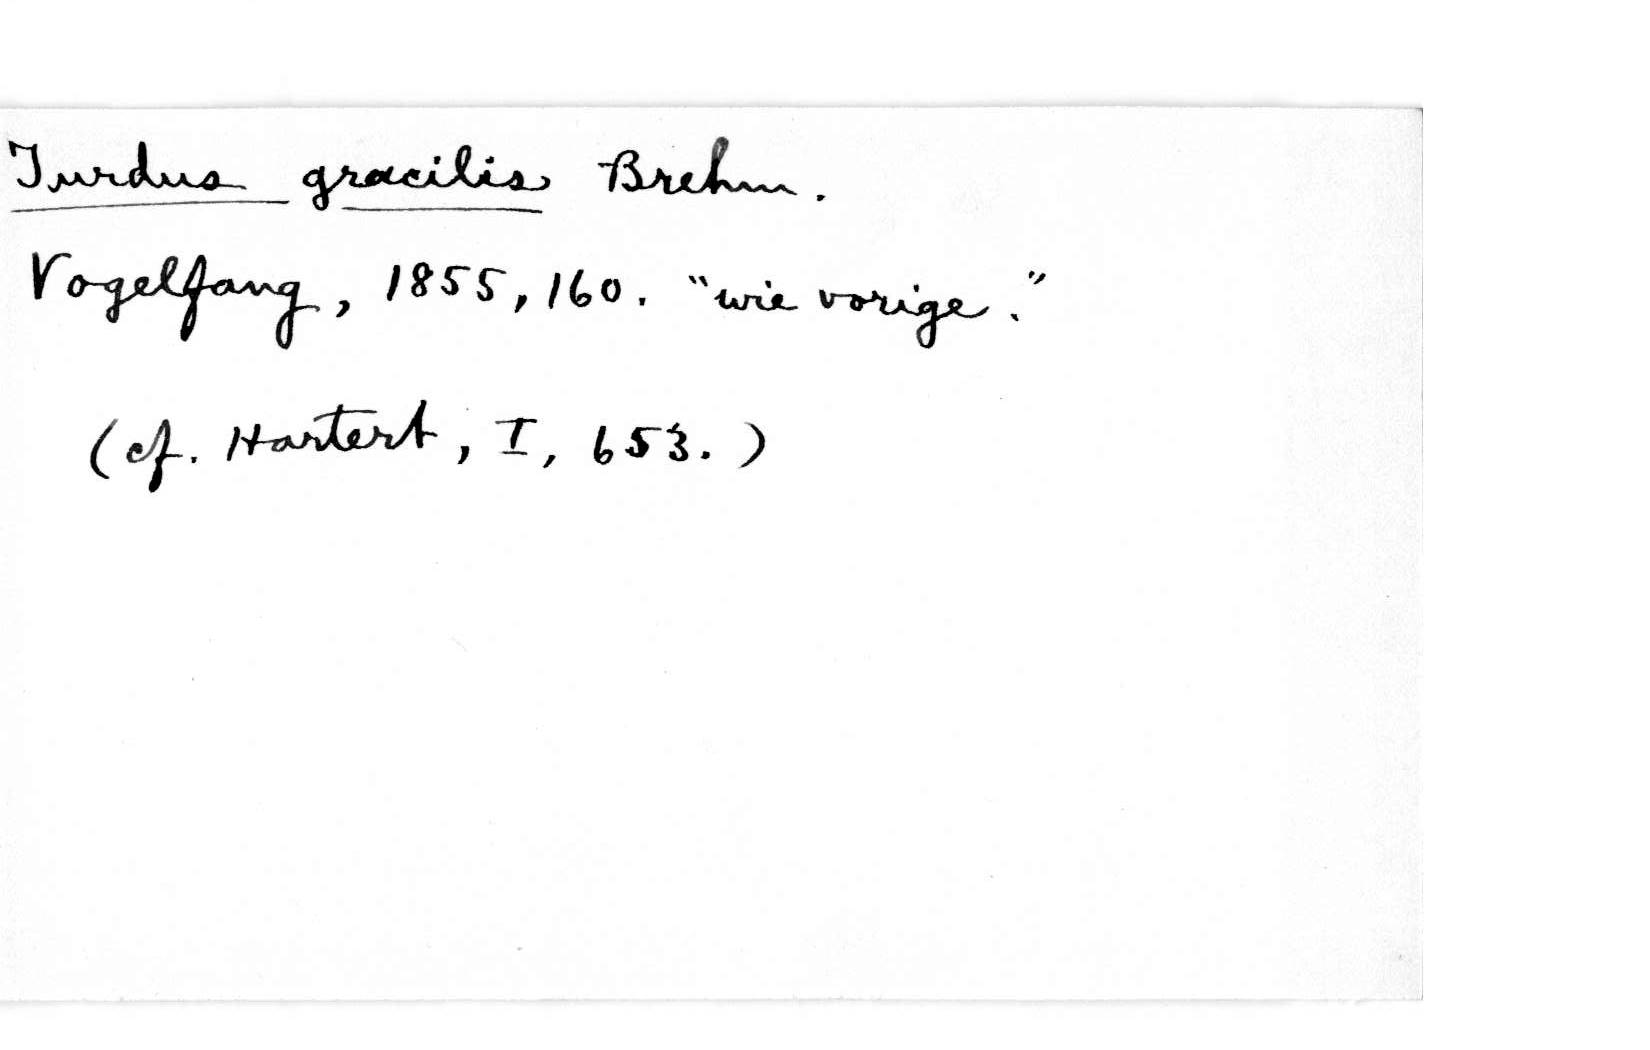 Turdus gracilis Brehm.
Vogelfang, 1855, 160. "wie vorige."
(cf. Hartert, I, 653.)